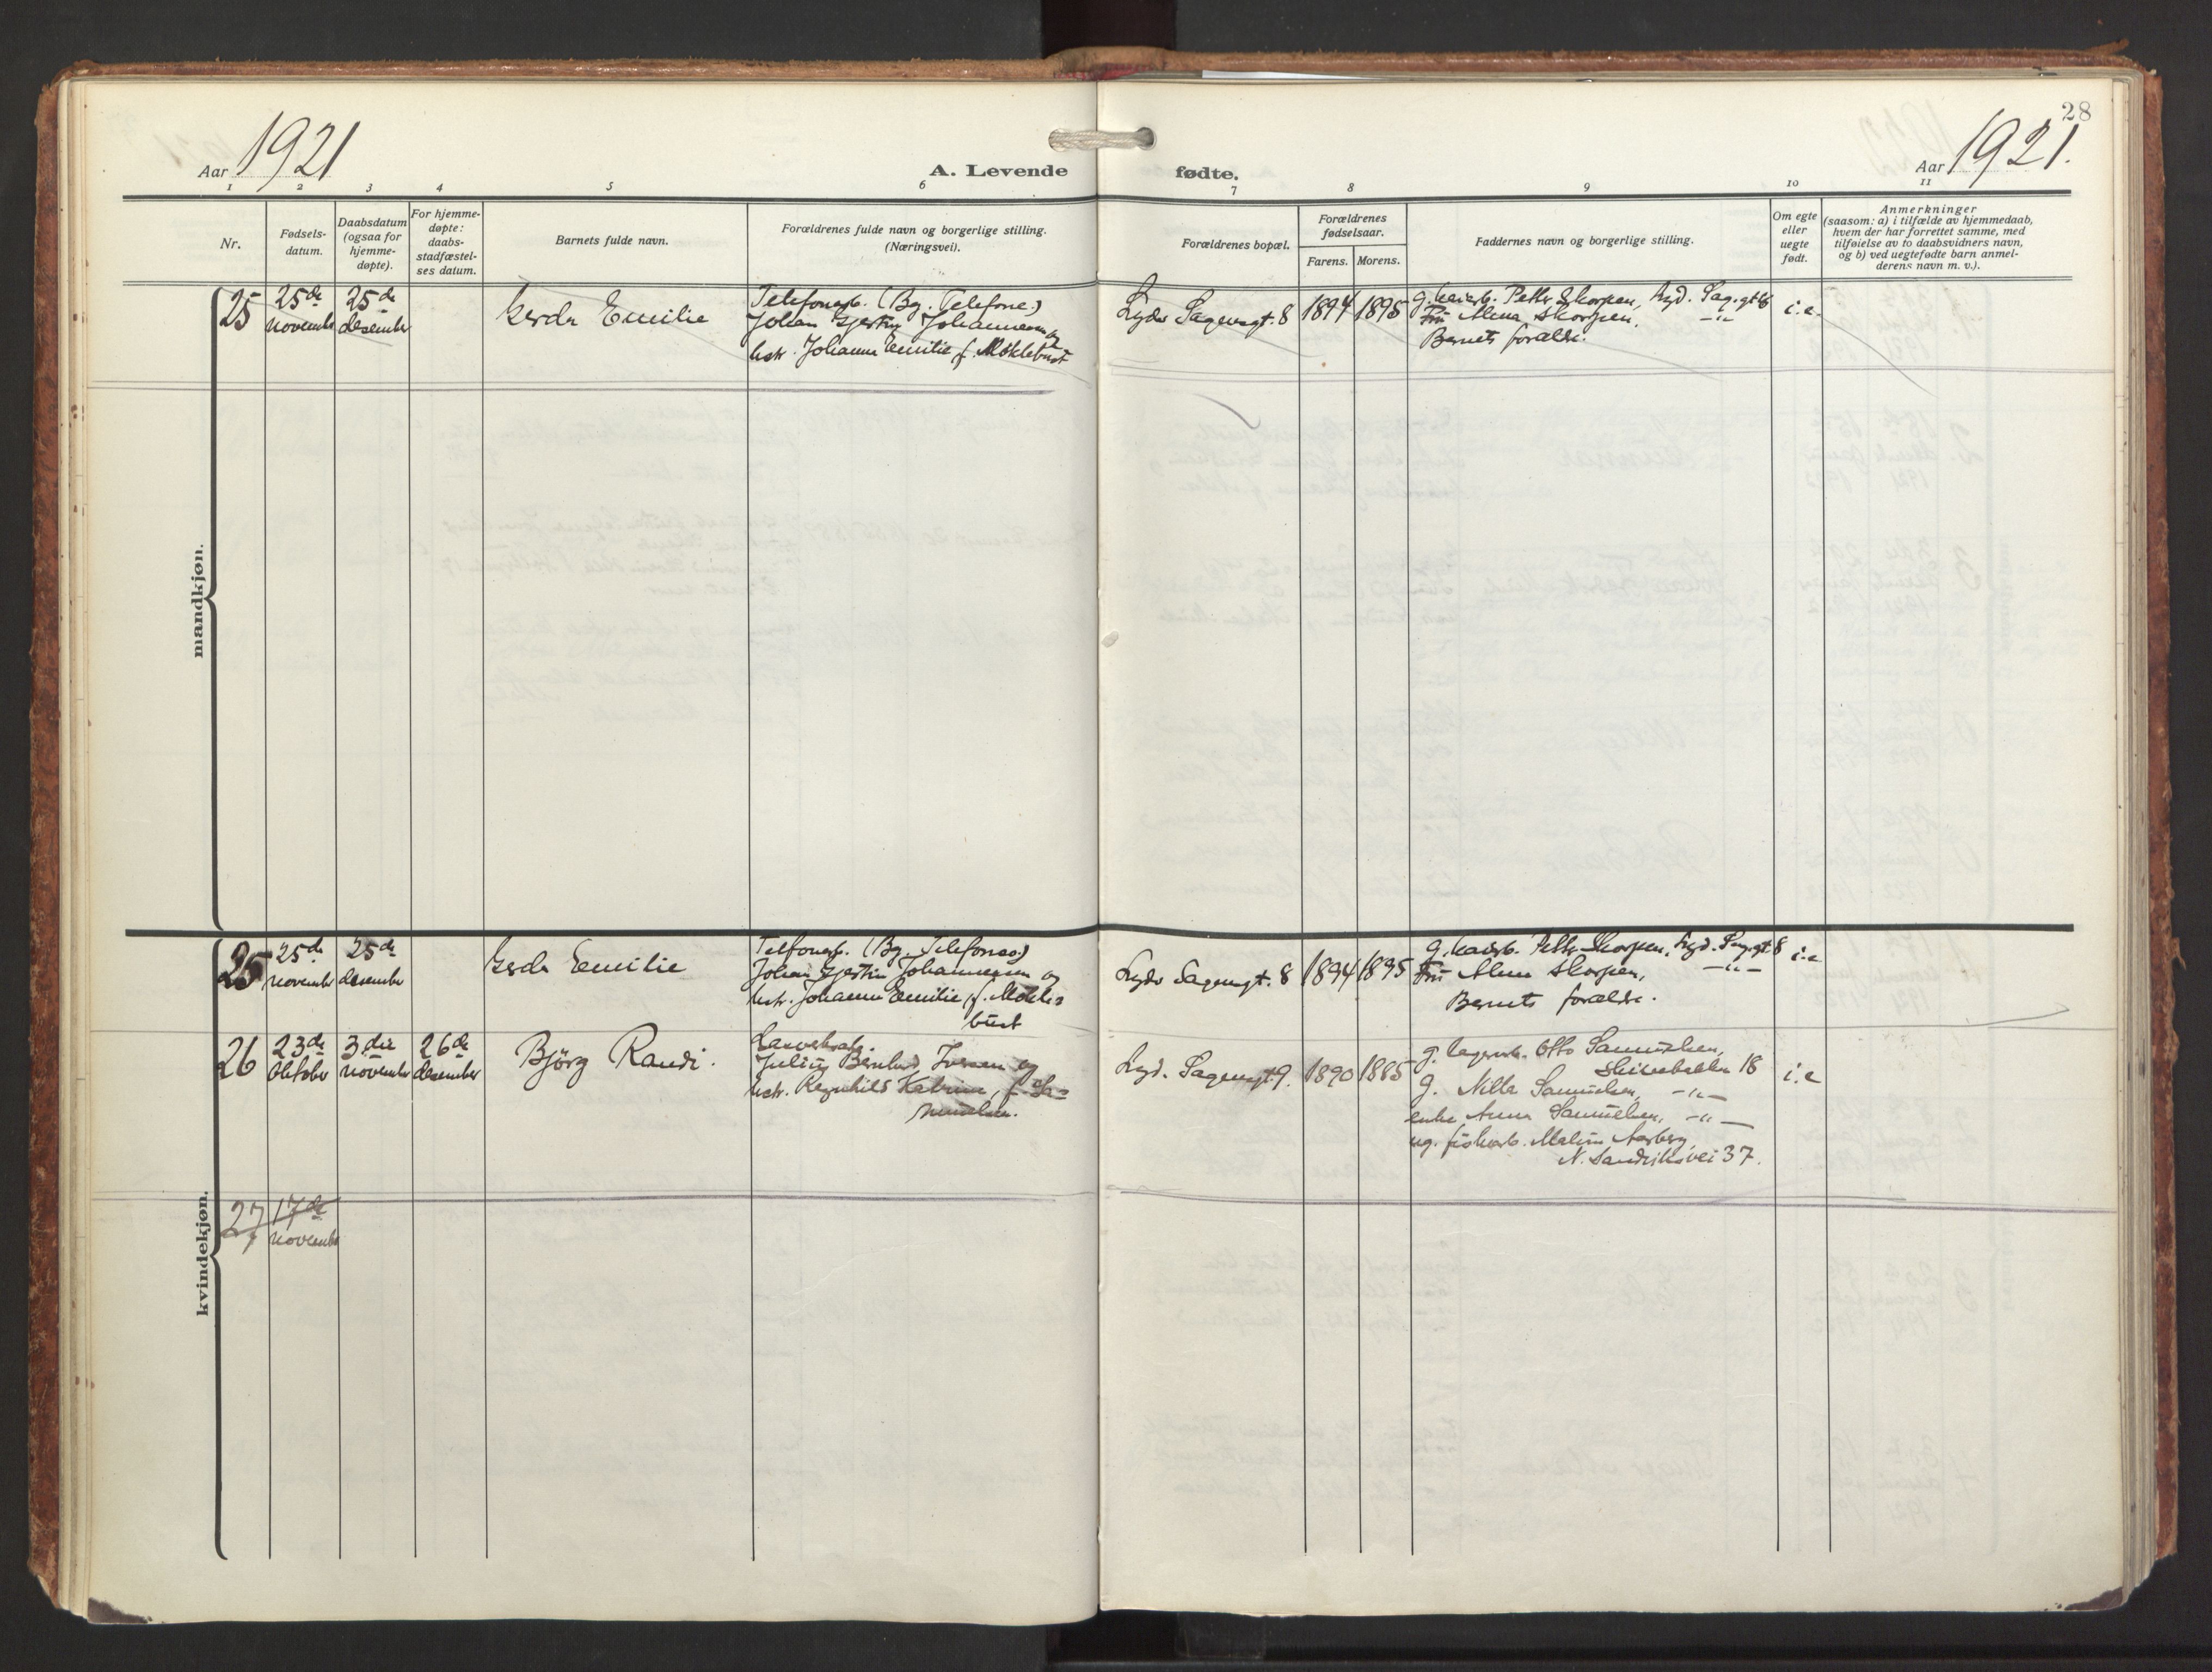 28
Aar 1921
A. Levende
fødte.
Aar 1921.
1 2 3 4 5 6 7 8 9 10 11
Nr.
Fødsels-
datum.
Daabsdatum
(ogsaa for
hjemme-
døpte).
For hjemme-
døpte:
daabs-
stadfæstel-
ses datum.
Barnets fulde navn.
Forældrenes fulde navn og borgerlige stilling.
(Næringsvei).
Forældrenes bopæl.
Forældrenes
fødselsaar.
Farens. Morens.
Faddernes navn og borgerlige stilling.
Om egte
eller
uegte
født.
Anmerkninger
(saasom: a) i tilfælde av hjemmedaab,
hvem der har forrettet samme, med
tilføielse av to daabsvidners navn,
og b) ved uegtefødte barn anmel-
derens navn m. v.).
mandkjøn.
25
25de
november
25de
desember
Gerda Emilie
Telefonarb. (Bg. Telefone)
Johan Gjertin Johannesen og
hstr. Johanna Emilie f. Møklebust
Lyder Sagensgt. 8
1894
1895
g. havnarb. Petter Skorpen, Lyd. Sag.gt 8
Fru Alma Skorpen, -"-
Barnets forældre.
i.e.
kvindekjøn.
25
25de
november
25de
desember
Gerda Emilie
Telfonarb. (Bg. Telefones)
Johan Gjertin Johannesen og
hstr. Johanna Emilie, f. Møkle=
bust
Lyder Sagensgt. 8
1894
1895
g. Petter Skorpen, Lyd. Sag.gt 8
Fru Alma Skorpen, -"-
Barnets forældre.
i.e
26
23de
oktober
3die
november
26de
desember
Björg Randi.
Julius Bernhard Iversen og
hstr. Ragnhild Katrine, f. Sa=
muelsen.
Lyd. Sagensgt 9.
1890
1885
g. lagerarb. Otto Samuelsen,
Skivebakken 18
g. Nilla Samuelsen, -"-
enke Anna Samuelsen, -"-
ug. Malin Aarberg,
N. Sandviksvei 37.
i.e
27
17de
november